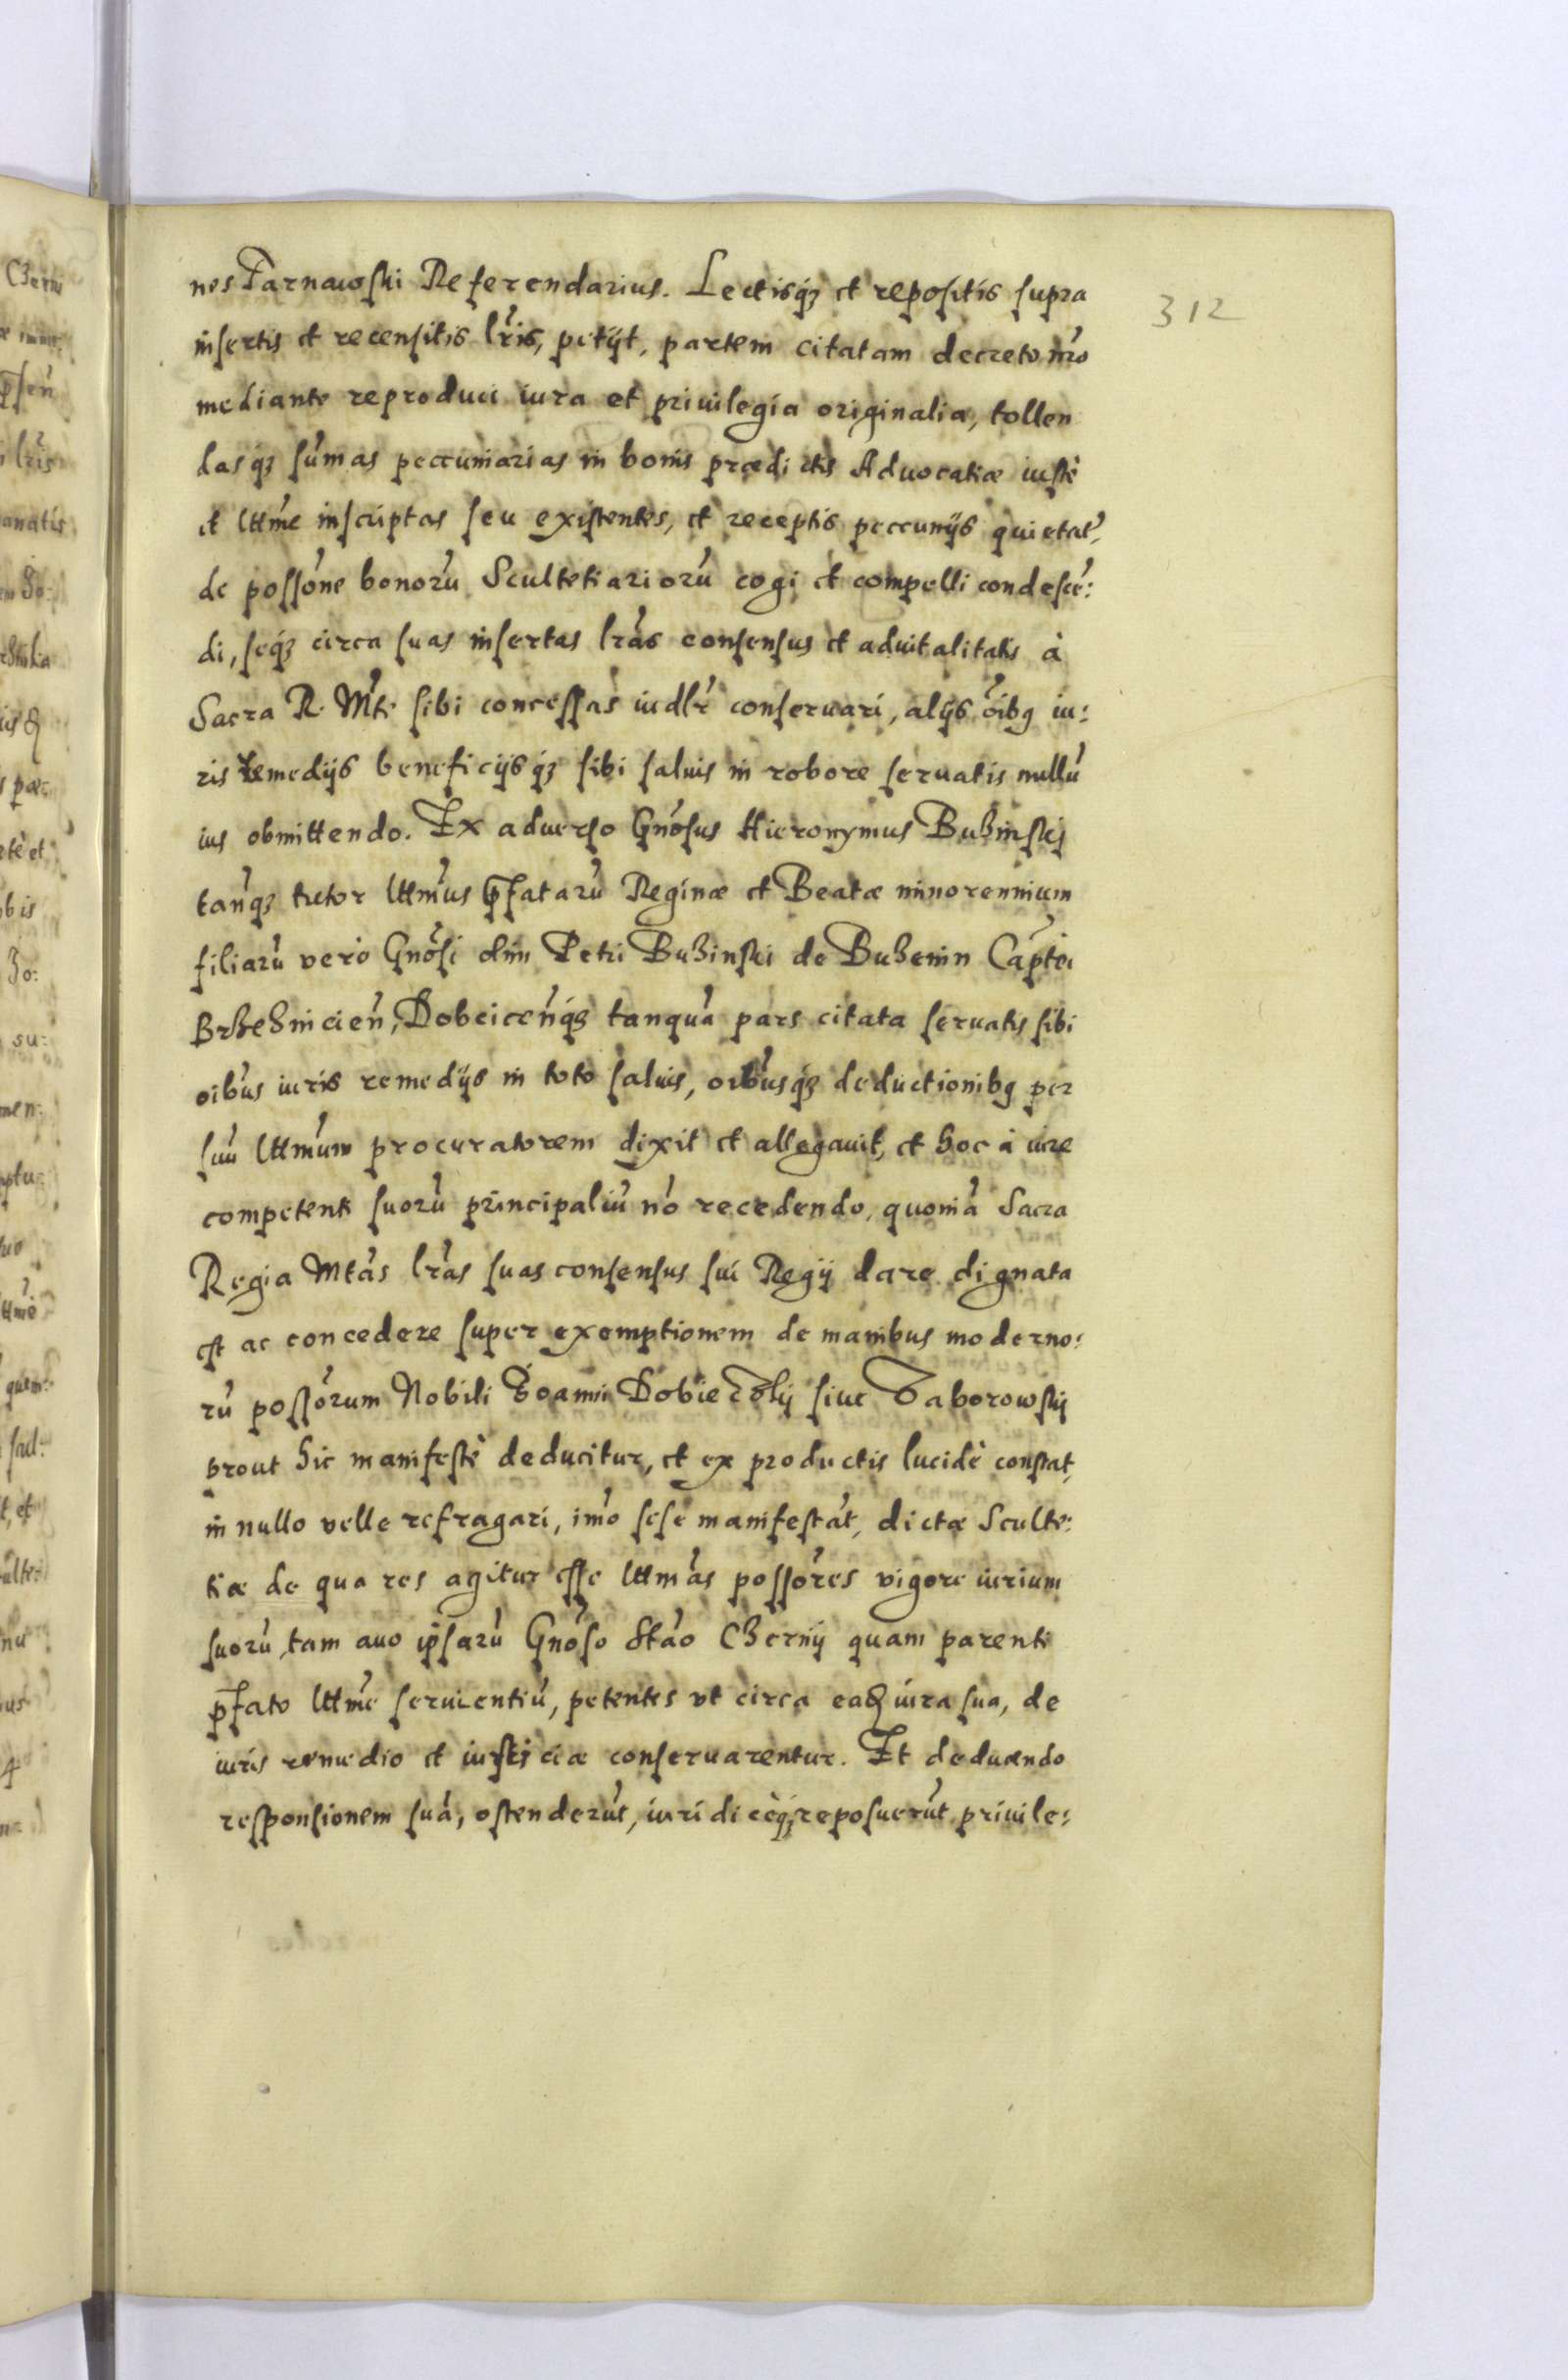 nes Tarnawski Referendarius. Lectisq́ʒ et repositis supra
312
insertis et recensitis lr̃is, petÿt, partem citatam decreto nr̃o
mediante reproduci iura et priuilegia originalia, tollen
dasq́ʒ sum̃as peccuniarias in bonis prædictis Aduocatiæ iustè
et lttm̃e inscriptas seu existentes, et receptis peccunÿs quietat̃,
de possõne bonorũ Scultetiariorũ cogi et compelli condescẽ:
di, seq́ʒ circa suas insertas lr̃as consensus et aduitalitatis à
Sacra R. Mt̃e sibi concessas iudlr̃ conseruari, alÿs õibg iu:
ris remedÿs beneficÿsq́ʒ sibi saluis in robore seruatis nullũ
ius obmittendo. Ex aduerso Gnõsus Hieronymus Buzinskj
tanq̃ʒ tutor lttm̃us p̃fatarũ Reginæ et Beatæ minorennium
filiarũ vero Gnõsi olim Petri Buzinski de Buzenin Cap̃tei
Brzeznicieñ, Dobciceñq́ʒ tanquã pars citata seruatis sibi
oib̃us iuris remedÿs in toto saluis, oib̃usq́ʒ deductionibg per
suũ lttm̃um procuratorem dixit et allegauit, et hoc à iure
competenti suorũ principaliũ nõ recedendo, quoniã Sacra
Regia Mtãs lr̃as suas consensus sui Regÿ dare dignata
est ac concedere super exemptionem de manibus moderno:
rũ possõrum Nobili Joanni Dobieczky siue Taborowskj
prout hic manifestè deducitur, et ex productis lucidè constat,
in nullo velle refragari, imõ sese manifestãt, dictæ Sculte:
tiæ de qua res agitur esse lttmãs possõres vigore iurium
suorũ, tam auo ip̃sarũ Gnõso Stão Czernÿ quam parenti
p̃fato lttm̃e seruientiũ, petentes vt circa eadʒ iura sua, de
iuris remedio et iusticiæ conseruarentur. Et deducendo
responsionem suã, ostenderũt, iuridicèq́ʒ reposuerũt priuile: